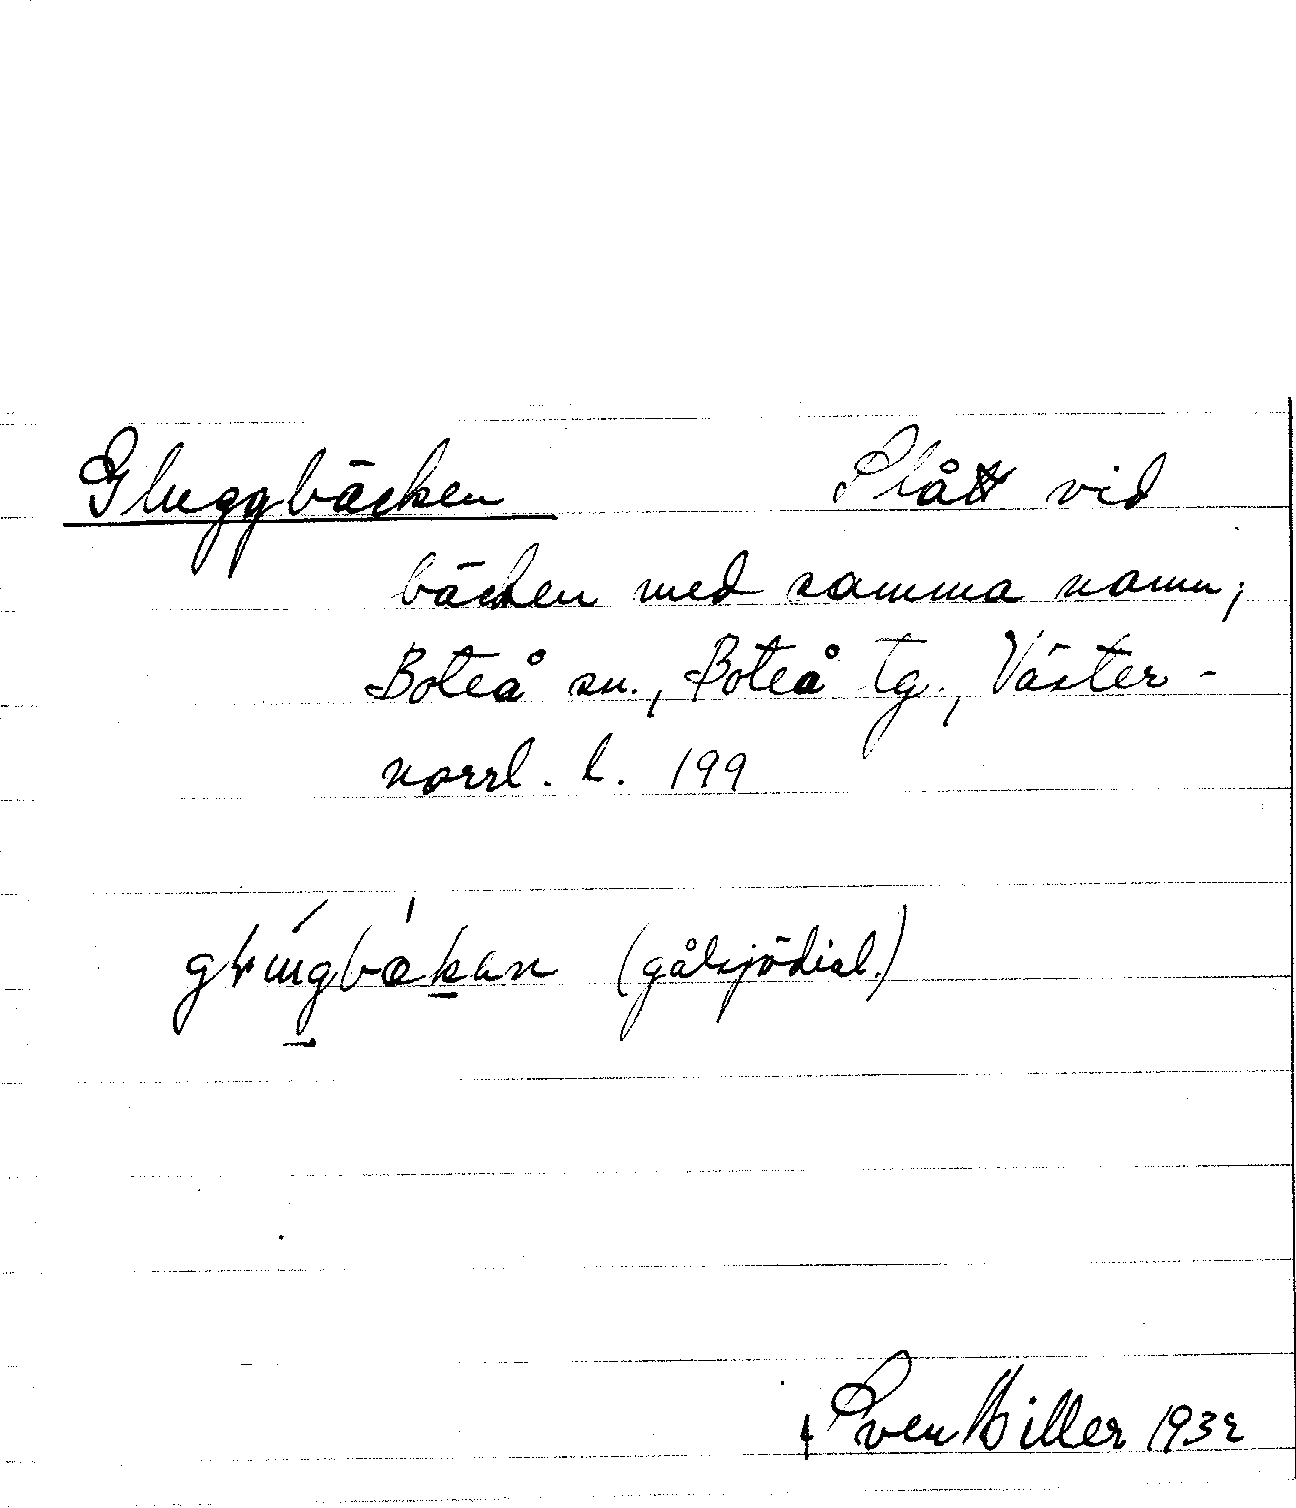 Gluggbäcken Slått vid
bäcken med samma namn,
Boteå sn., Boteå tg., Väster-
norrl. l. 199
(gålsjödial.)
1932